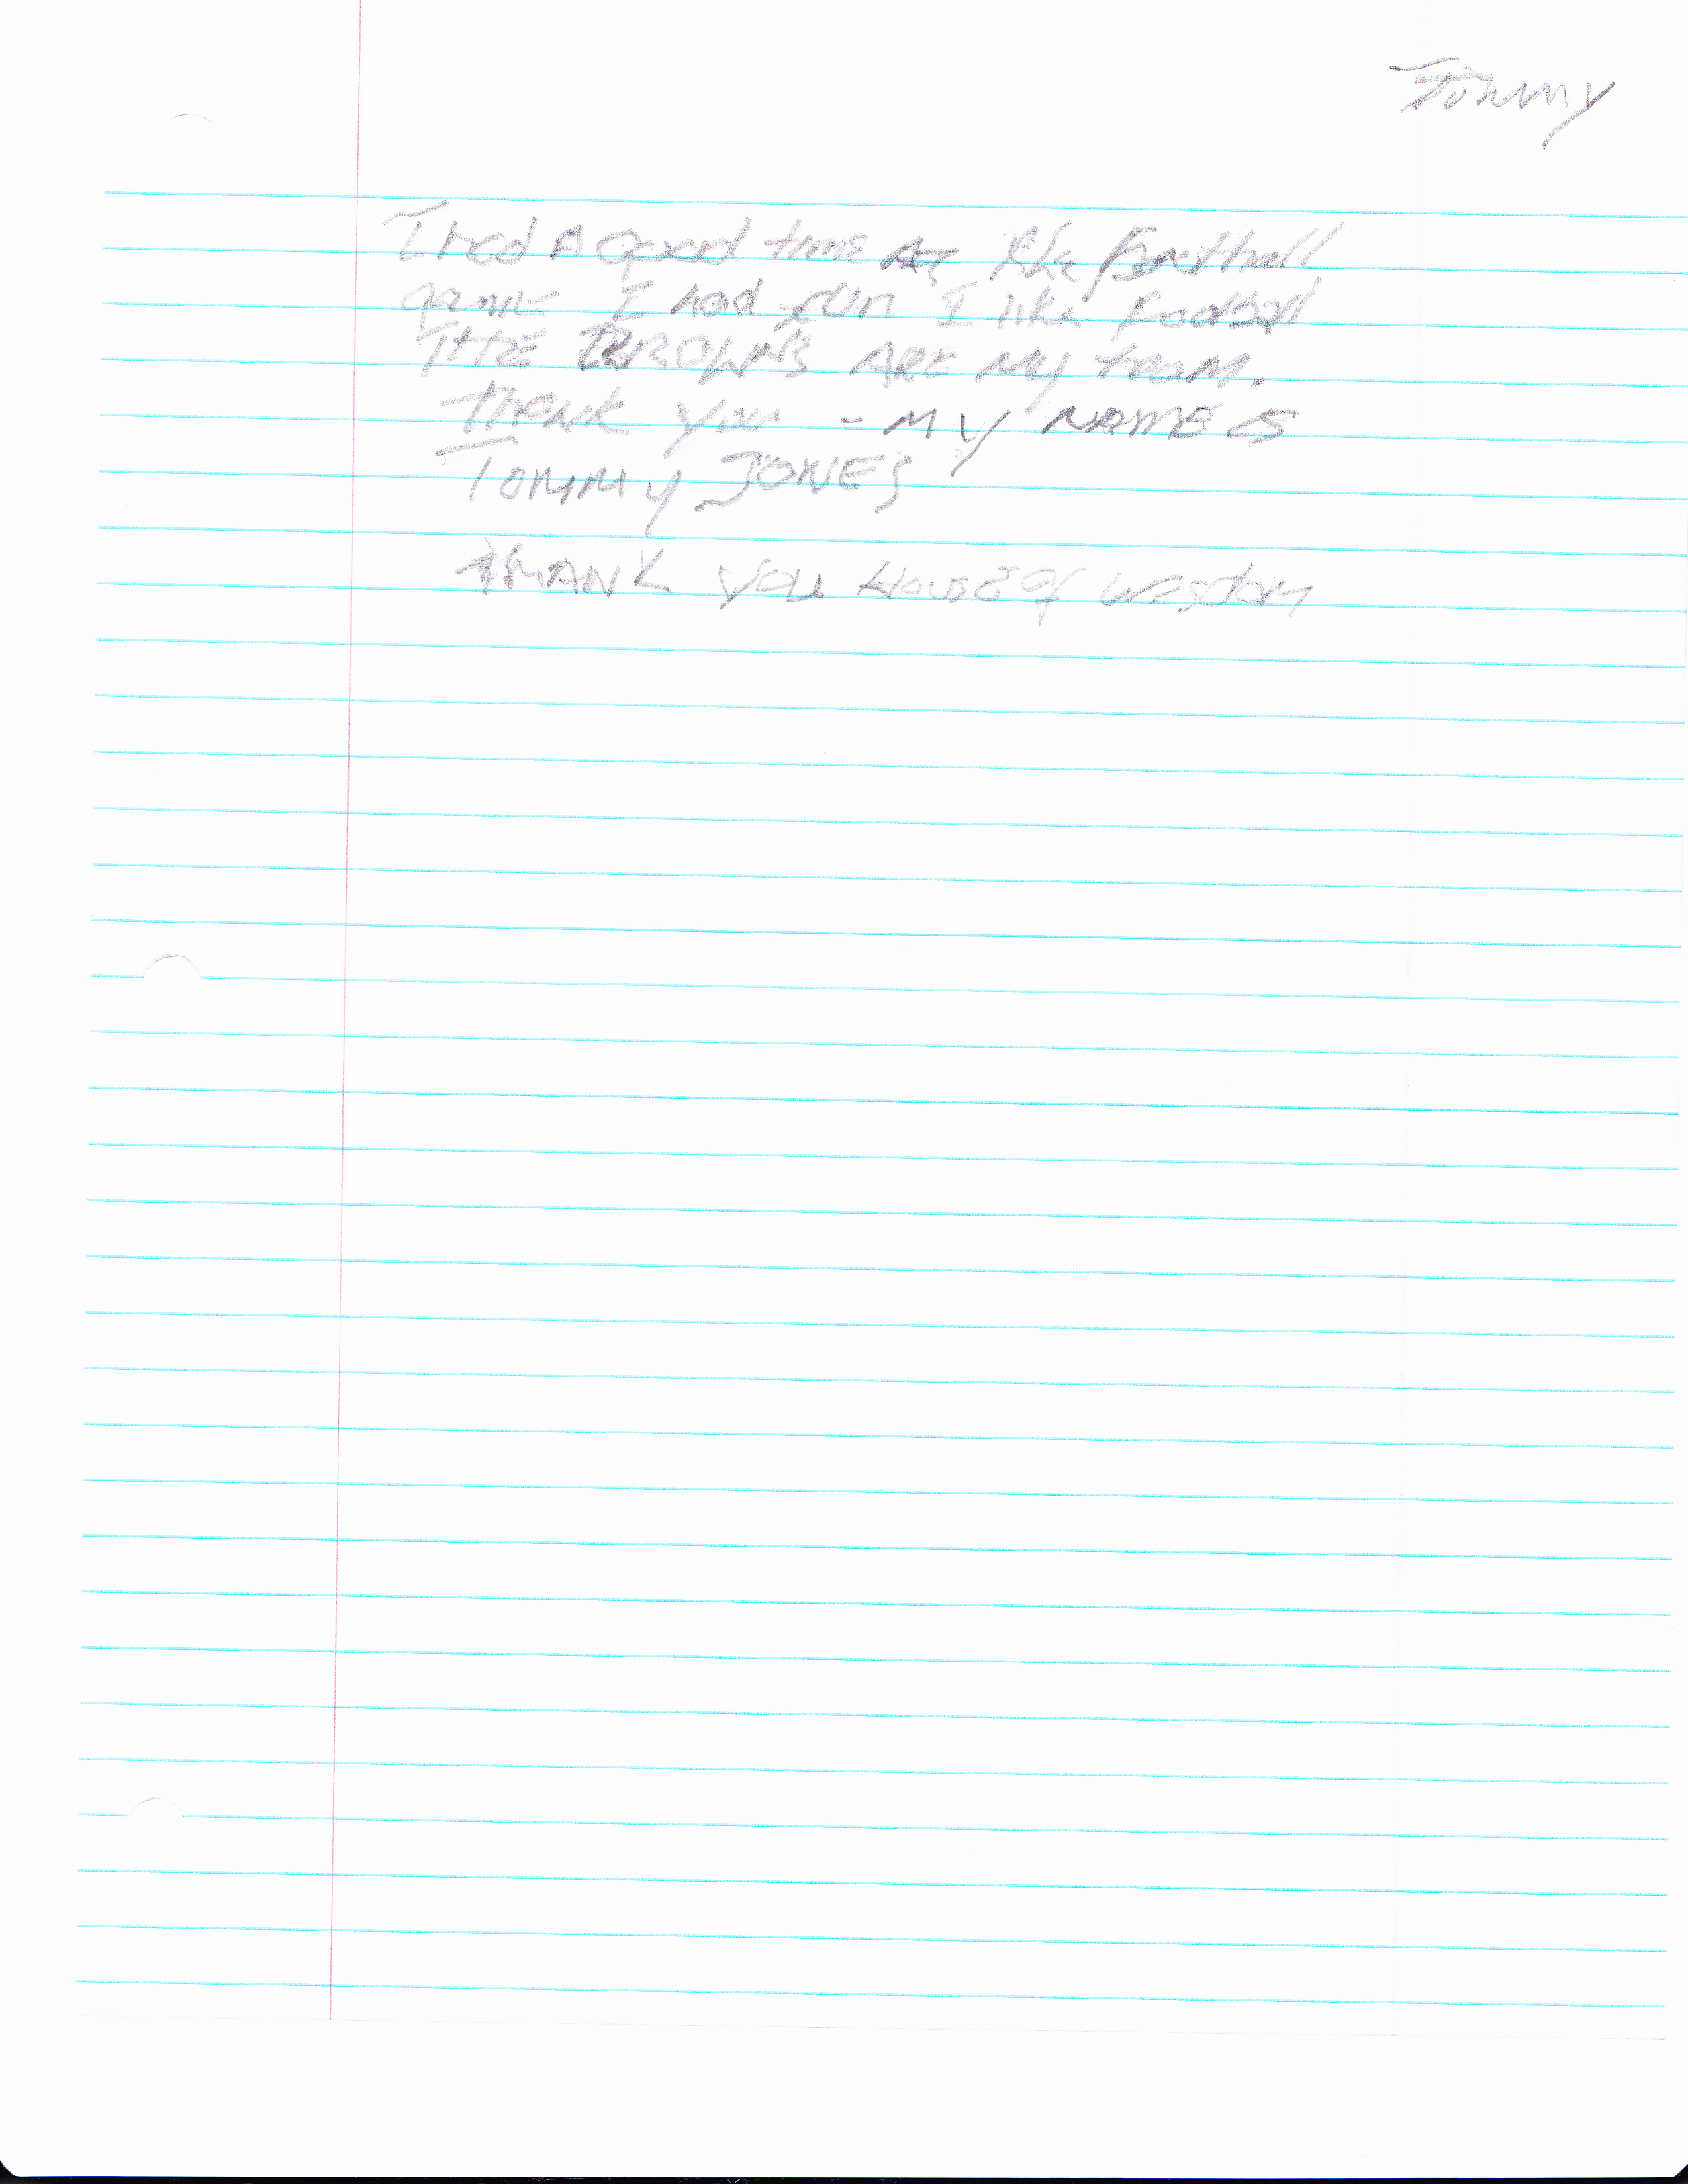 Tommy
I had A Good time At the Football
game I had fun I like football
THE BROWNS ARE My team.
Thank you - MY NAME is
TOMMY JONES
THANK YOU HOUSE of wisdom